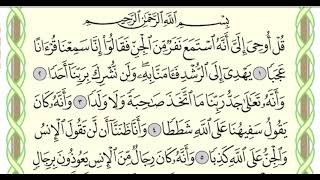 بِسْمِ اللَّهِ الرَّحْمَٰنِ الرَّحِيمِ
قُلْ أُوحِيَ إِلَيَّ أَنَّهُ اسْتَمَعَ نَفَرٌ مِّنَ الْجِنِّ فَقَالُوا إِنَّا سَمِعْنَا قُرْءَانًا
عَجَبًا ١ يَهْدِي إِلَى الرُّشْدِ فَـَٔامَنَّا بِهِ وَلَن نُّشْرِكَ بِرَبِّنَا أَحَدًا ٢
وَأَنَّهُ تَعَالَىٰ جَدُّ رَبِّنَا مَا اتَّخَذَ صَاحِبَةً وَلَا وَلَدًا ٣ وَأَنَّهُ كَانَ
يَقُولُ سَفِيهُنَا عَلَى اللَّهِ شَطَطًا ٤ وَأَنَّا ظَنَنَّا أَن لَّن تَقُولَ الْإِنسُ
وَالْجِنُّ عَلَى اللَّهِ كَذِبًا ٥ وَأَنَّهُ كَانَ رِجَالٌ مِّنَ الْإِنسِ يَعُوذُونَ بِرِجَالٍ